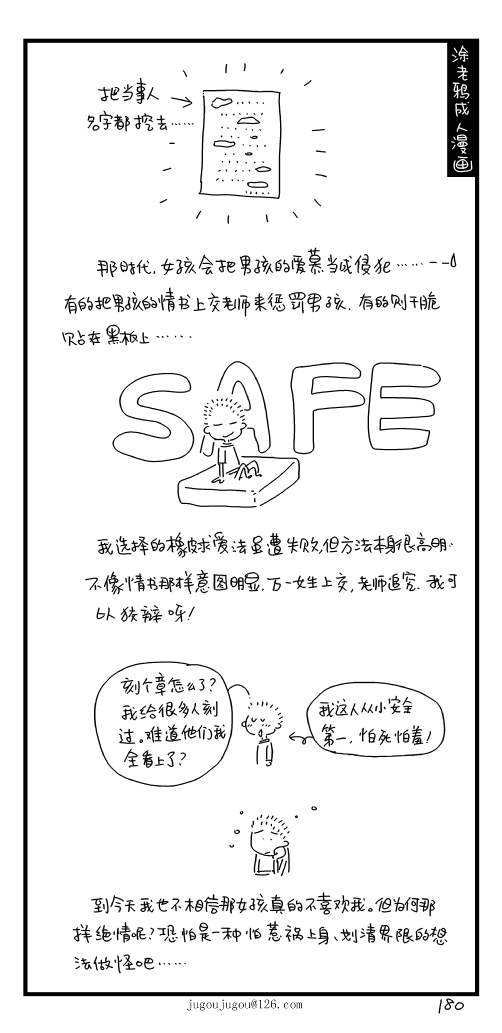 涂老鸦成人漫画
把当事人
名字都挖去……
那时代，女孩会把男孩的爱慕当成侵犯……--
有的把男孩的情书上交老师来惩罚男孩，有的则干脆
贴在黑板上……
SAFE
我选择的橡皮求爱法虽遭失败，但方法本身很高明.
不像情书那样意图明显，万一女生上交，老师追究，我可
以狡辩呀！
刻个章怎么了？
我给很多人刻
过。难道他们我
全看上了？
我这人从小安全
第一，怕死怕羞！
到今天我也不相信那女孩真的不喜欢我。但为何那
样绝情呢？恐怕是一种怕惹祸上身、划清界限的想
法做怪吧……
jugoujugou@126.com
180